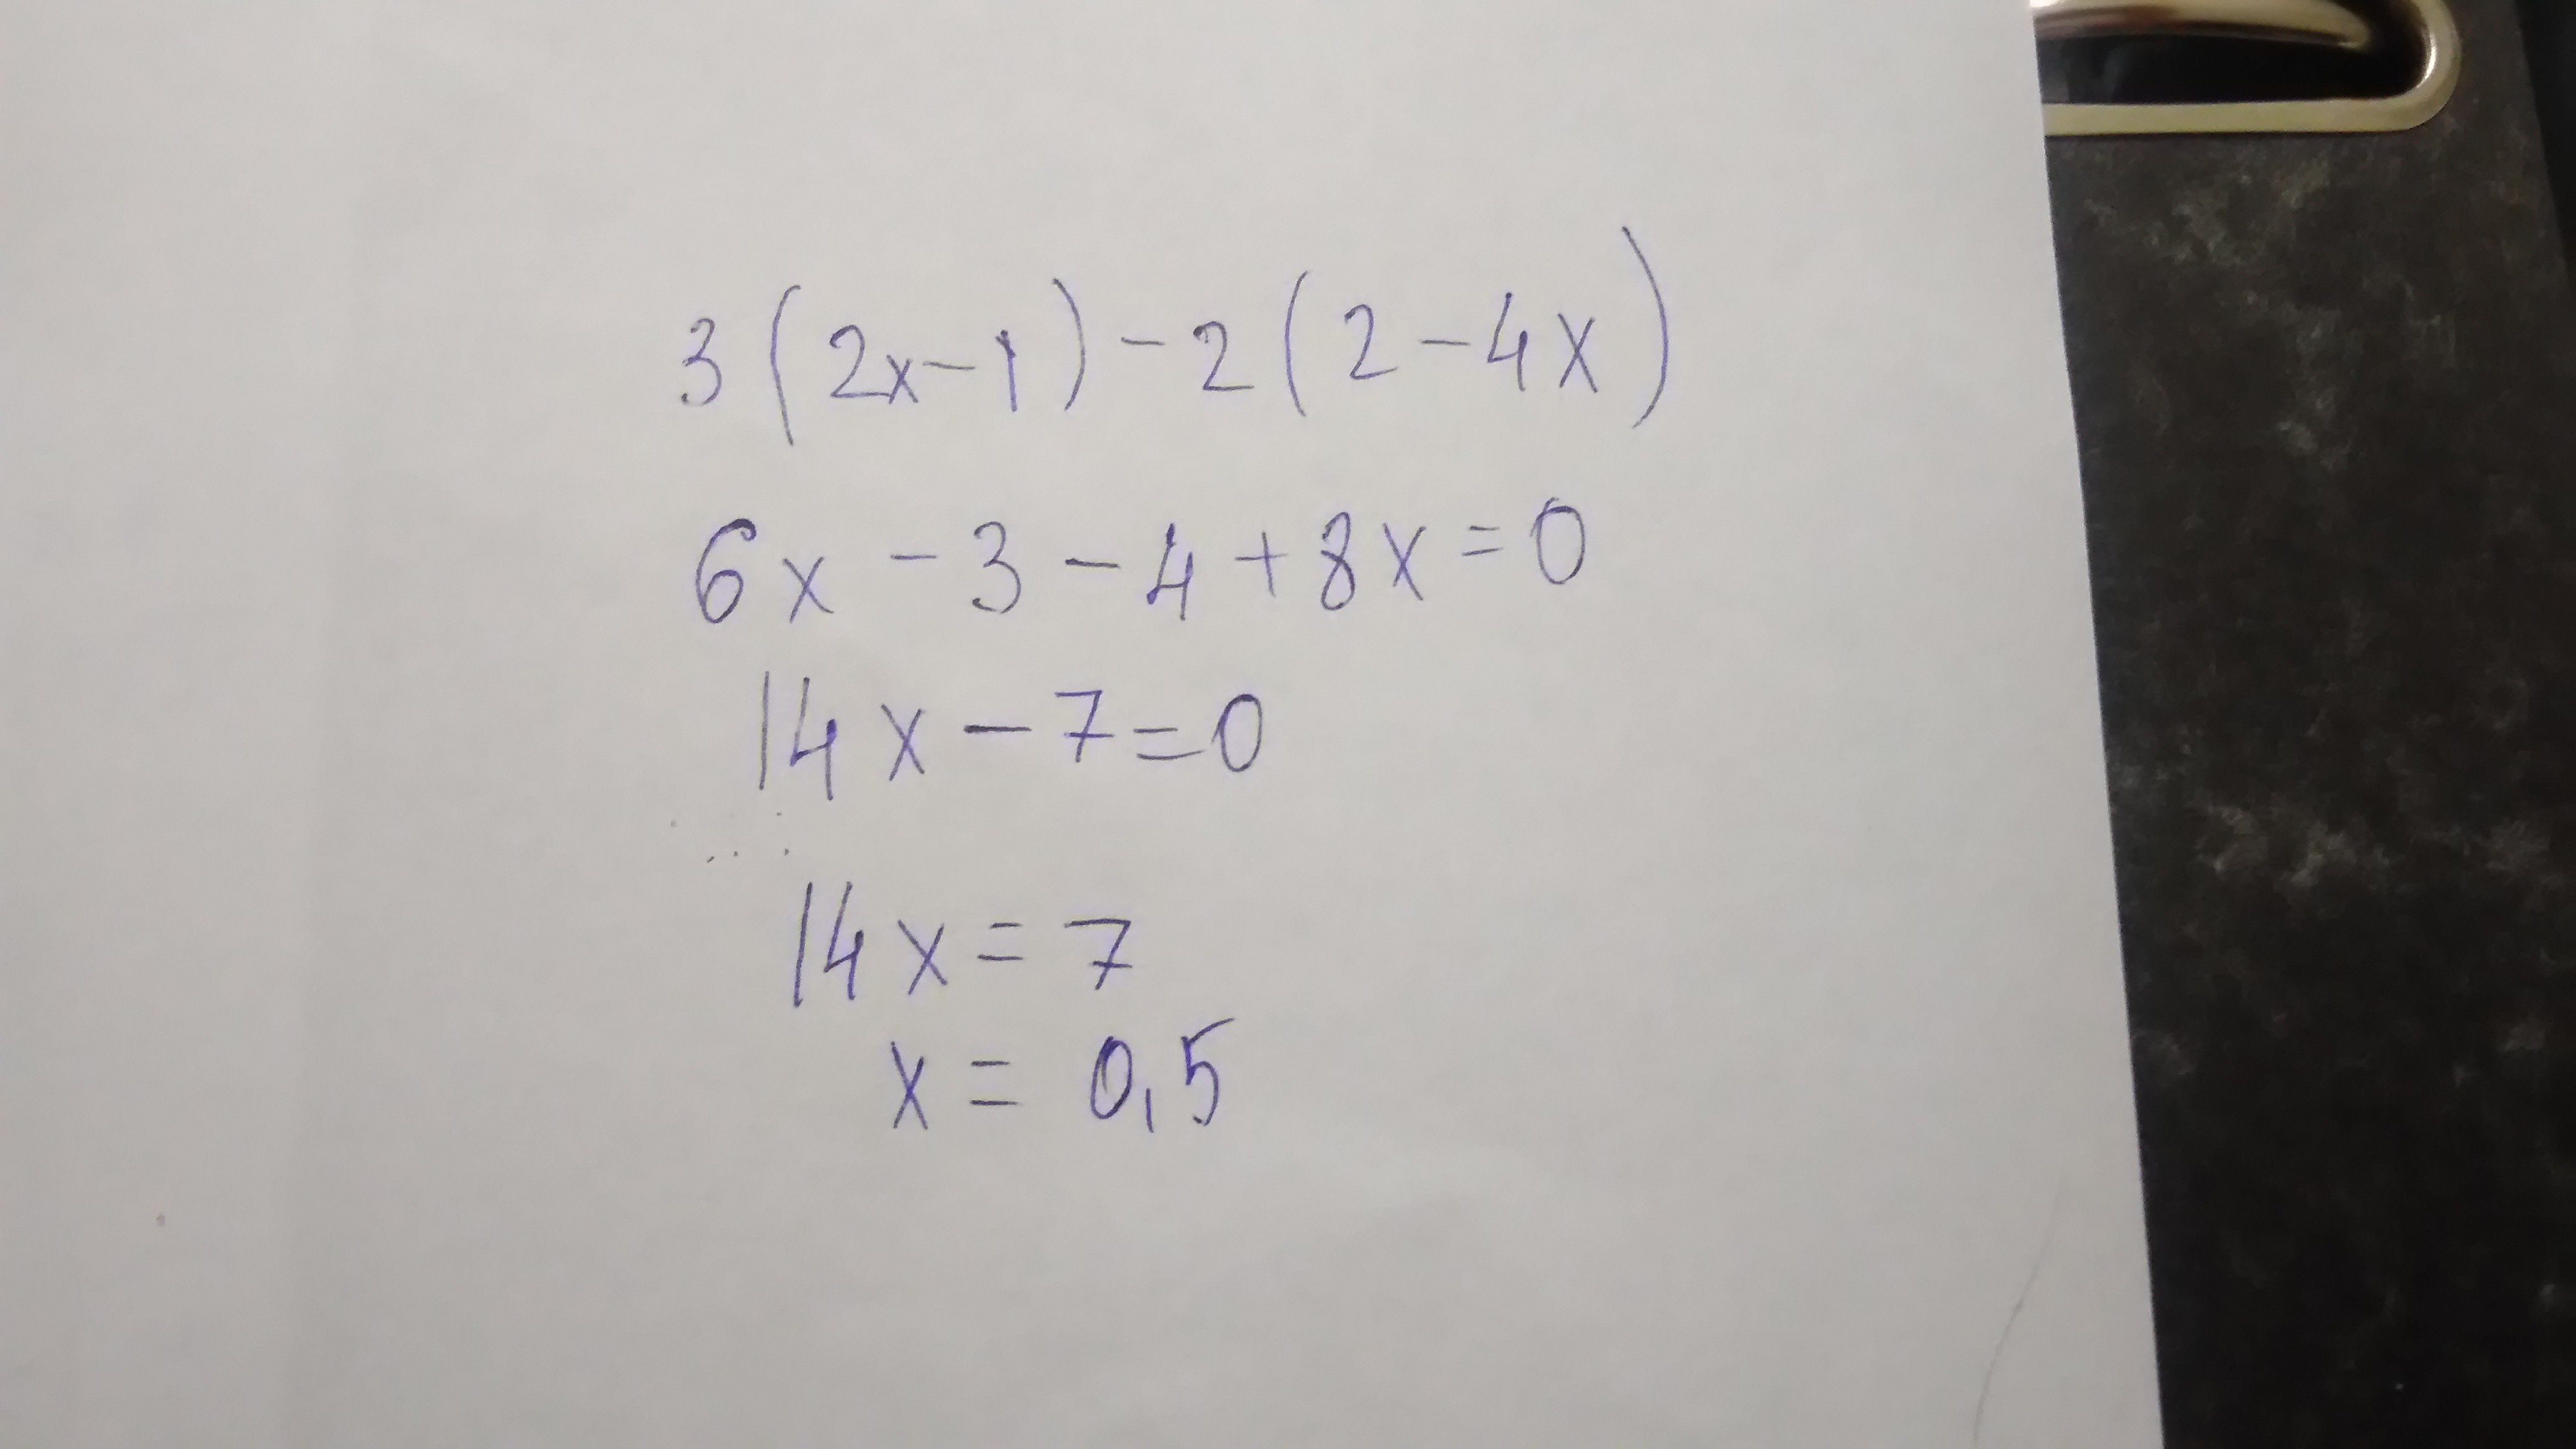 3(2x-1)-2(2-4x)
6x-3-4+8x=0
14x-7=0
14x=7
x=0,5